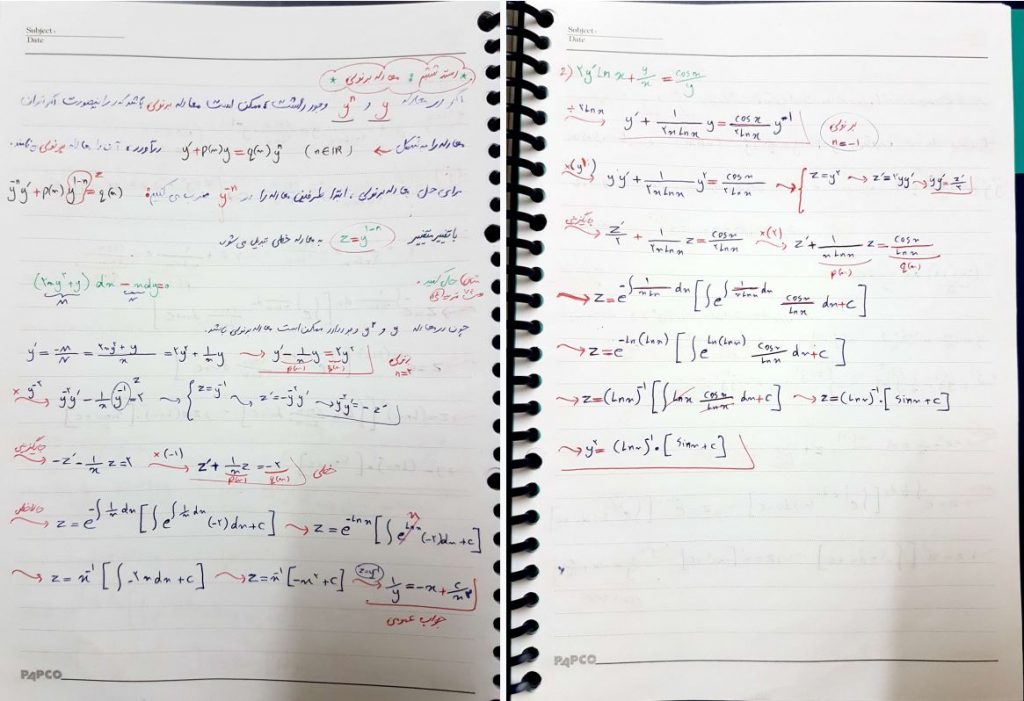 Subject:
Date
* دسته ششم : معادله برنولی *
اگر در معادله y و yⁿ وجود داشت، ممکن است معادله برنولی باشد که در اینصورت اگر بتوان
معادله را به شکل ← y′ + p(x)y = q(x)yⁿ (n∈IR) درآورد، آن را معادله برنولی می‌نامند.
برای حل معادله برنولی، ابتدا طرفین معادله را در y⁻ⁿ ضرب می‌کنیم: y⁻ⁿy′ + p(x)y¹⁻ⁿ = q(x) z
با تغییر متغیر z = y¹⁻ⁿ به معادله خطی تبدیل می‌شود
(۲xy²+y) dx − xdy = 0 حل کنید.
M N
چون در معادله y و y² وجود دارد ممکن است معادله برنولی باشد.
y′ = −M/N = (۲xy²+y)/x = ۲y² + 1/x y ⇝ y′ − 1/x y = ۲y² برنولی n=۲
p(x) q(x)
× y⁻² ⇝ y⁻²y′ − 1/x y⁻¹ = ۲ z ⇝ { z = y⁻¹ ⇝ z′ = −y⁻²y′ ⇝ y⁻²y′ = −z′
جایگزینی ⇝ −z′ − 1/x z = ۲ ×(−1) ⇝ z′ + 1/x z = −۲ خطی
p(x) q(x)
⇝ z = e^(−∫1/x dx) [∫ e^(∫1/x dx) (−۲) dx + c] ⇝ z = e^(−Lnx) [∫ e^(Lnx) (−۲) dx + c] x
⇝ z = x⁻¹ [∫ −۲x dx + c] ⇝ z = x⁻¹ [−x² + c] z=y⁻¹ ⇝ 1/y = −x + c/x
جواب عمومی
PAPCO
Subject:
Date
2) ۲y′ Ln x + y/x = cosx/y
÷ ۲Lnx ⇝ y′ + 1/(۲x Lnx) y = cosx/(۲Lnx) y⁻¹ برنولی n = −1
×(y) ⇝ y′y + 1/(۲x Lnx) y² = cosx/(۲Lnx) ⇝ { z = y² ⇝ z′ = ۲yy′ ⇝ yy′ = z′/۲
جایگزینی ⇝ z′/۲ + 1/(۲x Lnx) z = cosx/(۲Lnx) ×(۲) ⇝ z′ + 1/(x Lnx) z = cosx/Lnx
p(x) q(x)
⇝ z = e^(−∫1/(x Lnx) dx) [∫ e^(∫1/(x Lnx) dx) cosx/Lnx dx + c]
⇝ z = e^(−Ln(Lnx)) [∫ e^(Ln(Lnx)) cosx/Lnx dx + c]
⇝ z = (Lnx)⁻¹ [∫ Lnx cosx/Lnx dx + c] ⇝ z = (Lnx)⁻¹ · [sinx + c]
⇝ y² = (Lnx)⁻¹ · [sinx + c]
PAPCO